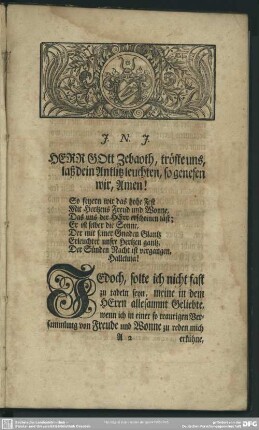 J. N. J.
HERR GOtt Zebaoth, tröste uns,
laß dein Antlitz leuchten, so genesen
wir, Amen!
So feyern wir das hohe Fest
Mit Hertzens Freud und Wonne,
Das uns der HErr erscheinen läst;
Er ist selber die Sonne,
Der mit seiner Gnaden Glantz
Erleuchtet unser Hertzen gantz,
Der Sünden Nacht ist vergangen,
Halleluia!
JEDoch, solte ich nicht fast
zu tadeln seyn, meine in dem
HErrn allesammt Geliebte,
wenn ich in einer so traurigen Ver-
sammlung von Freude und Wonne zu reden mich
A 2 erkühne,